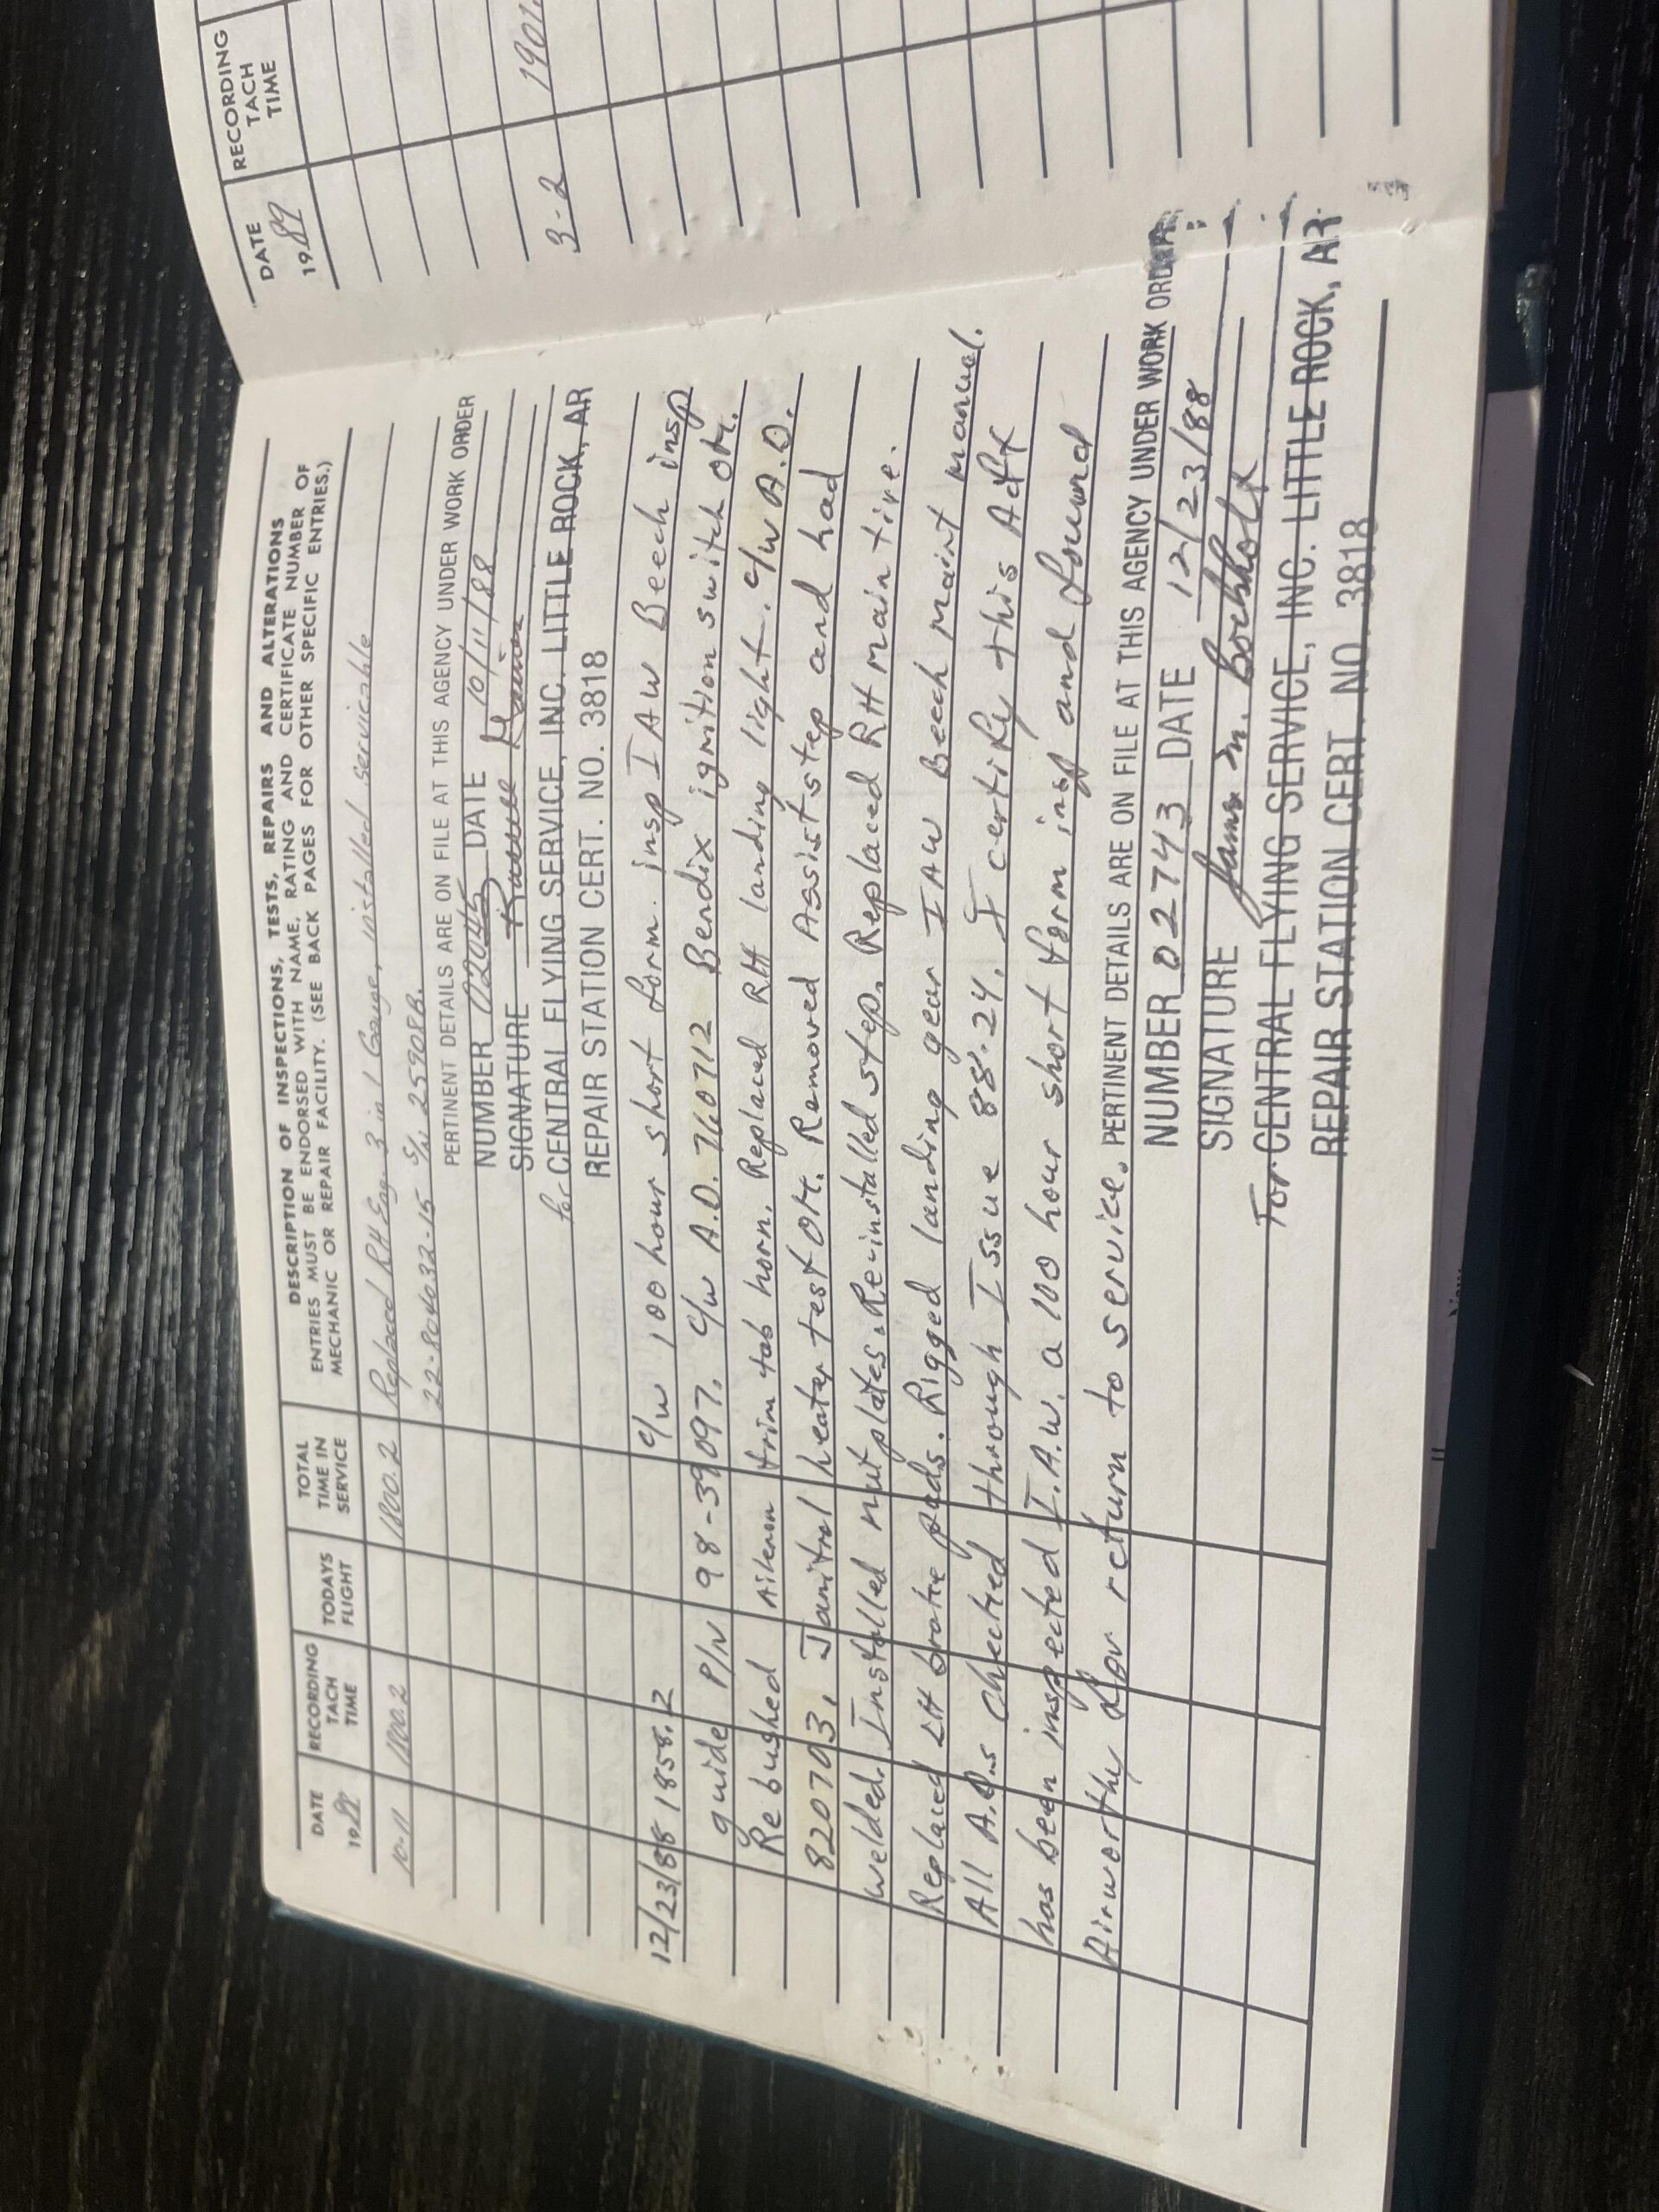 DATE
1988
RECORDING
TACH
TIME
TODAYS
FLIGHT
TOTAL
TIME IN
SERVICE
DESCRIPTION OF INSPECTIONS, TESTS, REPAIRS AND ALTERATIONS
ENTRIES MUST BE ENDORSED WITH NAME, RATING AND CERTIFICATE NUMBER OF
MECHANIC OR REPAIR FACILITY. (SEE BACK PAGES FOR OTHER SPECIFIC ENTRIES.)
10-11 1800.2 1800.2 Replaced RH Eng. 3 in 1 Gauge, installed servicable
22-804032-15 S/N 25908B.
PERTINENT DETAILS ARE ON FILE AT THIS AGENCY UNDER WORK ORDER
NUMBER 02045 DATE 10/11/88
SIGNATURE
for CENTRAL FLYING SERVICE, INC. LITTLE ROCK, AR
REPAIR STATION CERT. NO. 3818
12/23/88 1858.2 c/w 100 hour short form. insp IAW Beech insp
guide P/N 98-39097. c/w A.D. 760712 Bendix ignition switch OK.
Rebushed Aileron trim tab horn. Replaced RH landing light. c/w A.D.
820703, Janitrol heater test OK. Removed Assist step and had
welded. Installed nutplates. Re-installed step. Replaced RH main tire.
Replaced LH brake pads. Rigged landing gear IAW Beech maint manual.
All A.D.s checked through Issue 88-24. I certify this Acft
has been inspected I.A.W. a 100 hour short form insp and found
Airworthy for return to service. PERTINENT DETAILS ARE ON FILE AT THIS AGENCY UNDER WORK ORDER
NUMBER 02743 DATE 12/23/88
SIGNATURE James M. Bockholt
For: CENTRAL FLYING SERVICE, INC. LITTLE ROCK, AR
REPAIR STATION CERT. NO. 3818
DATE
1989
RECORDING
TACH
TIME
3-2 1901.